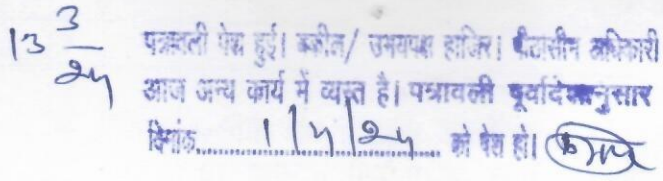 13 3/24 पत्रावली पेश हुई। वकील/ उभयपक्ष हाजिर। पीठासीन अधिकारी
आज अन्य कार्य में व्यस्त है। पत्रावली पूर्वादेशानुसार
दिनांक....................1/4/24.................... को पेश हो।